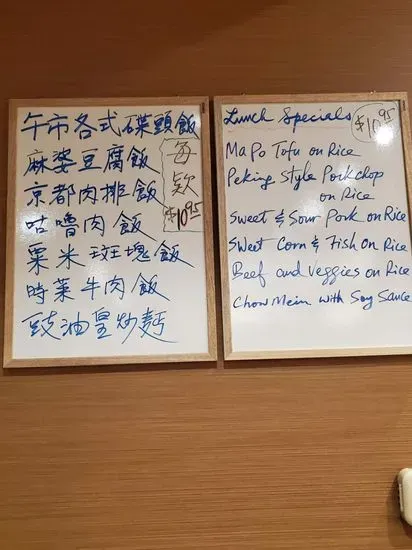 午市各式碟頭飯
麻婆豆腐飯
京都肉排飯
咕嚕肉飯
粟米斑塊飯
時菜牛肉飯
豉油皇炒麵
每款
$10.95
Lunch Specials $10.95
Ma Po Tofu on Rice
Peking Style Porkchop
on Rice
Sweet & Sour Pork on Rice
Sweet Corn & Fish on Rice
Beef and Veggies on Rice
Chow Mein with Soy Sauce